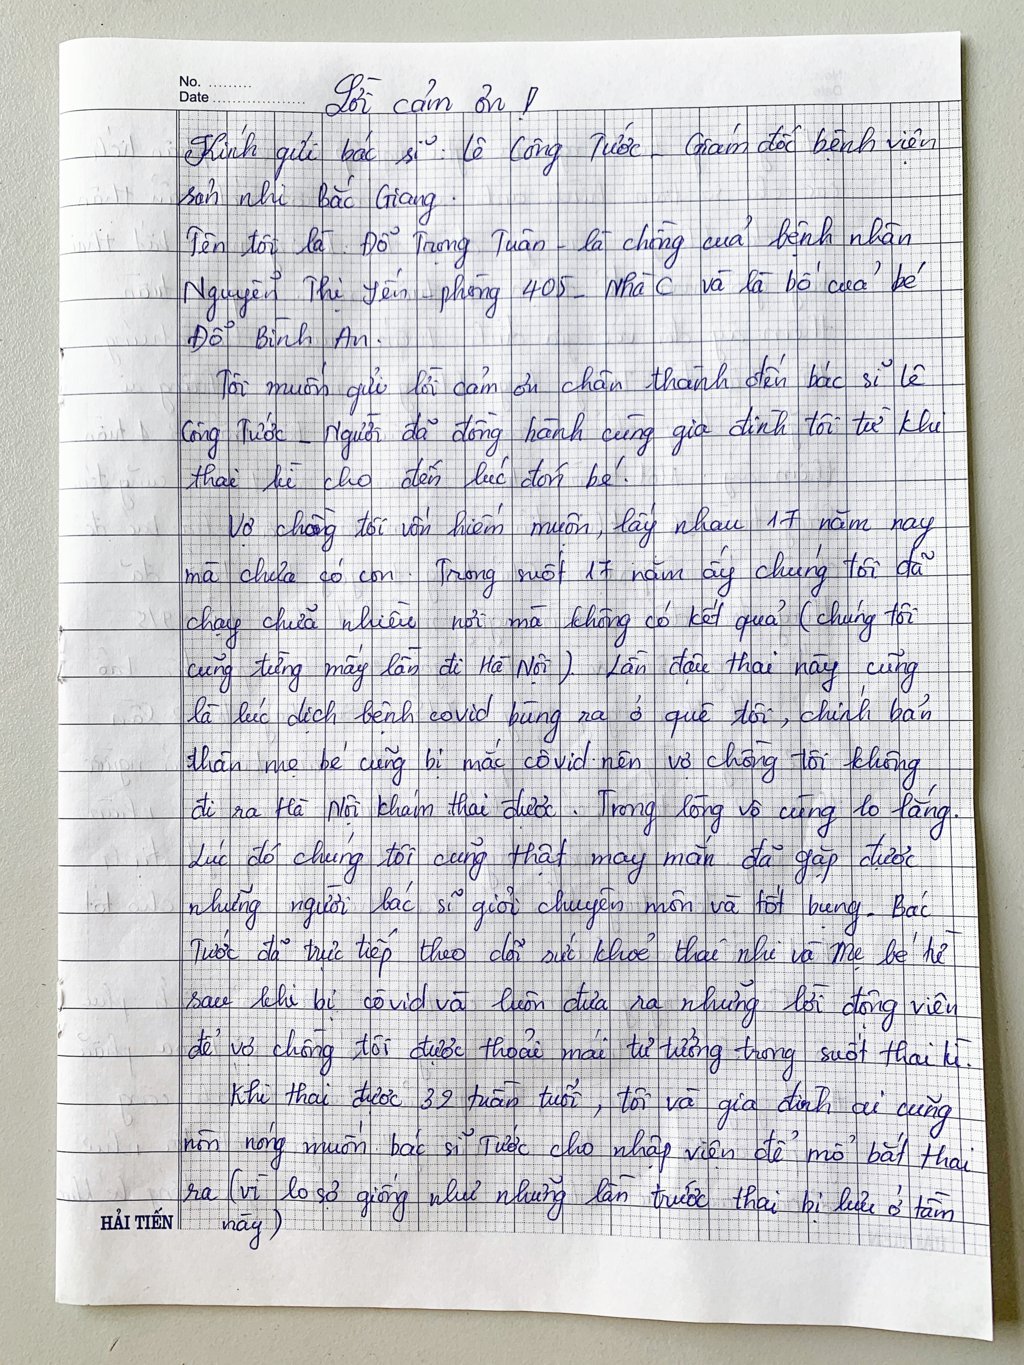 No. .........
Date ..................
Lời cảm ơn!
Kính gửi bác sĩ: Lê Công Tước - Giám đốc bệnh viện
sản nhi Bắc Giang.
Tên tôi là: Đỗ Trọng Tuân - là chồng của bệnh nhân
Nguyễn Thị Yến - phòng 405 - Nhà C và là bố của bé
Đỗ Bình An.
Tôi muốn gửi lời cảm ơn chân thành đến bác sĩ Lê
Công Tước - Người đã đồng hành cùng gia đình tôi từ khi
thai kì cho đến lúc đón bé.
Vợ chồng tôi vốn hiếm muộn, lấy nhau 17 năm nay
mà chưa có con. Trong suốt 17 năm ấy chúng tôi đã
chạy chữa nhiều nơi mà không có kết quả (chúng tôi
cũng từng mấy lần đi Hà Nội). Lần đậu thai này cũng
là lúc dịch bệnh covid bùng ra ở quê tôi, chính bản
thân mẹ bé cũng bị mắc côvid nên vợ chồng tôi không
đi ra Hà Nội khám thai được. Trong lòng vô cùng lo lắng.
Lúc đó chúng tôi cũng thật may mắn đã gặp được
những người bác sĩ giỏi chuyên môn và tốt bụng. Bác
Tước đã trực tiếp theo dõi sức khoẻ thai nhi và Mẹ bé kể
sau khi bị côvid và luôn đưa ra những lời động viên
để vợ chồng tôi được thoải mái tư tưởng trong suốt thai kì.
Khi thai được 32 tuần tuổi, tôi và gia đình ai cũng
nôn nóng muốn bác sĩ Tước cho nhập viện để mổ bắt thai
ra (vì lo sợ giống như những lần trước thai bị lưu ở tầm
này)
HẢI TIẾN